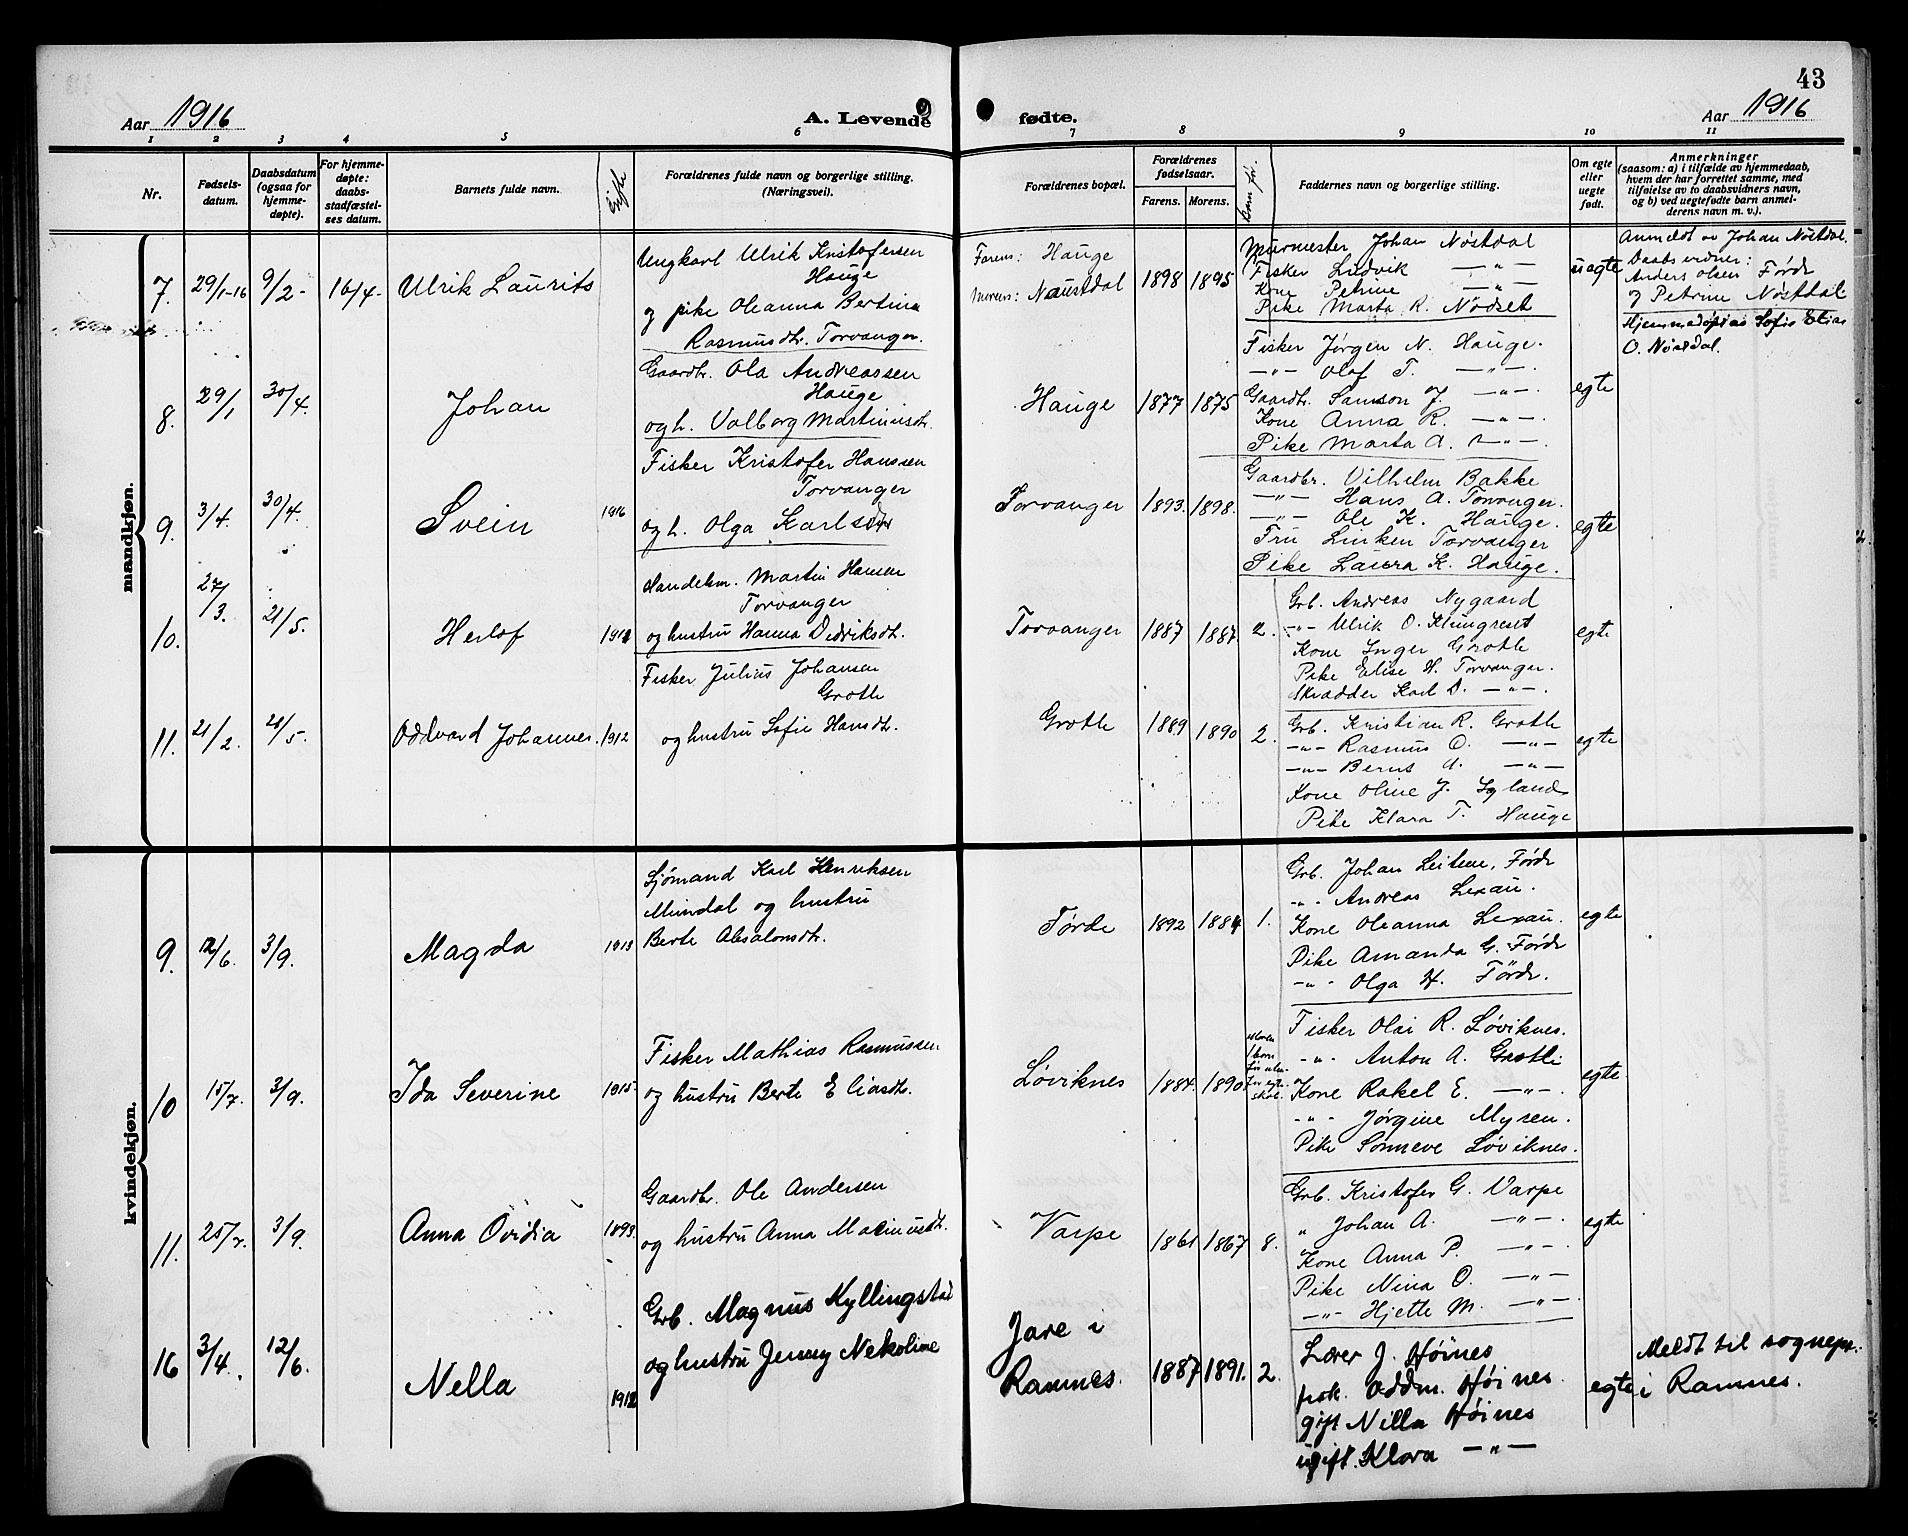 43
Aar 1916
A. Levende fødte.
Aar 1916
1 2 3 4 5 6 7 8 9 10 11
Nr.
Fødsels-
datum.
Daabsdatum
(ogsaa for
hjemme-
døpte).
For hjemme-
døpte:
daabs-
stadfæstel-
ses datum.
Barnets fulde navn.
Forældrenes fulde navn og borgerlige stilling.
(Næringsvei).
Forældrenes bopæl.
Forældrenes
fødselsaar.
Farens. Morens.
Faddernes navn og borgerlige stilling.
Om egte
eller
uegte
født.
Anmerkninger
(saasom: a) i tilfælde av hjemmedaab,
hvem der har forrettet samme, med
tilføielse av to daabsvidners navn,
og b) ved uegtefødte barn anmel-
derens navn m. v.).
mandkjøn.
7. 29/1-16 9/2- 16/4- Ulrik Laurits
Ungkarl Ulrik Kristofersen
Hauge
og pike Oleanna Bertina
Rasmusdtr. Torvanger.
Farens: Hauge
Morens: Naustdal
1898 1895
Murmester Johan Nøstdal
Fisker Ludvik —"—
Kone Petrine —"—
Pike Marta R. Nødset
uegte
Anmeldt av Johan Nøstdal.
Daabsvidner:
Anders Olsen Førde
og Petrine Nøstdal.
Hjemmedøpt as Sofie Elias
O. Nøstdal.
8. 29/1 30/4. Johan
Gaardbr. Ola Andreassen
Hauge
og h. Valborg Martinusdtr.
Hauge 1877 1875
Fisker Jørgen N. Hauge.
—"— Olaf T. —"—.
Gaardbr. Samson J. —"—.
Kone Anna R. —"—.
Pike Marta A. —"—.
egte
9. 3/4. 30/4. Svein 1916
Fisker Kristofer Hanssen
Torvanger
og h. Olga Karlsdtr
Torvanger 1893. 1898.
Gaardbr. Vilhelm Bakke
—"— Hans A. Torvanger.
—"— Ole K. Hauge.
Fru Linken Torvanger
Pike Laura K. Hauge.
egte
10. 27/3. 21/5. Herlof 1912
Handelsm. Martin Hansen
Torvanger
og hustru Hanna Didriksdtr.
Torvanger 1887 1887. 2.
Grb. Andreas Nygaard
—"— Ulrik O. Klungreset
Kone Inger Grotle
Pike Elise H. Torvanger.
Skrædder Karl D. —"—.
egte
11. 21/2. 21/5. Oddvard Johannes. 1912
Fisker Julius Johansen
Grotle
og hustru Sofie Hansdtr.
Grotle 1889 1890 2.
Grb. Kristian R. Grotle
—"— Rasmus O. —"—
—"— Berns A. —"—
Kone Oline J. Igland
Pike Klara T. Hauge
egte
kvindekjøn.
9. 12/6. 3/9. Magda 1913
Sjømand Karl Henriksen
Mindal og hustru
Berte Absalonsdtr.
Førde 1892 1884 1.
Grb. Johan Leitene, Førde
—"— Andreas Lexau.
Kone Oleanna Lexau.
Pike Amanda G. Førde
—"— Olga H. Førde.
egte
10 15/7. 3/9. Ida Severine 1915.
Fisker Mathias Rasmussen
og hustru Berte Eliasdtr.
Løviknes 1884. 1890
Fisker Olai R. Løviknes.
—"— Anton A. Grotle
Kone Rakel E. —"—.
—"— Jørgine Myren.
Pike Sønneve Løviknes.
egte
11. 25/7. 3/9. Anna Ovidia 1893.
Gaardbr. Ole Andersen
og hustru Anna Marinusdtr.
Varpe 1861 1867 8.
Grb. Kristofer G. Varpe
" Johan A. —"—.
Kone Anna P. —"—.
Pike Nina O. —"—
—"— Hjette M. —"—
egte
16 3/4. 12/6. Nella 1912
Grb. Magnus Kyllingstad
og hustru Jenny Nekoline
Jare i
Ramnes. 1887 1891. 2.
Lærer J. Høines
frk. Oddm. Høines.
gift Nilla Høines
ugift. Klara —"—
egte
Meldt til sognepr.
i Ramnes.